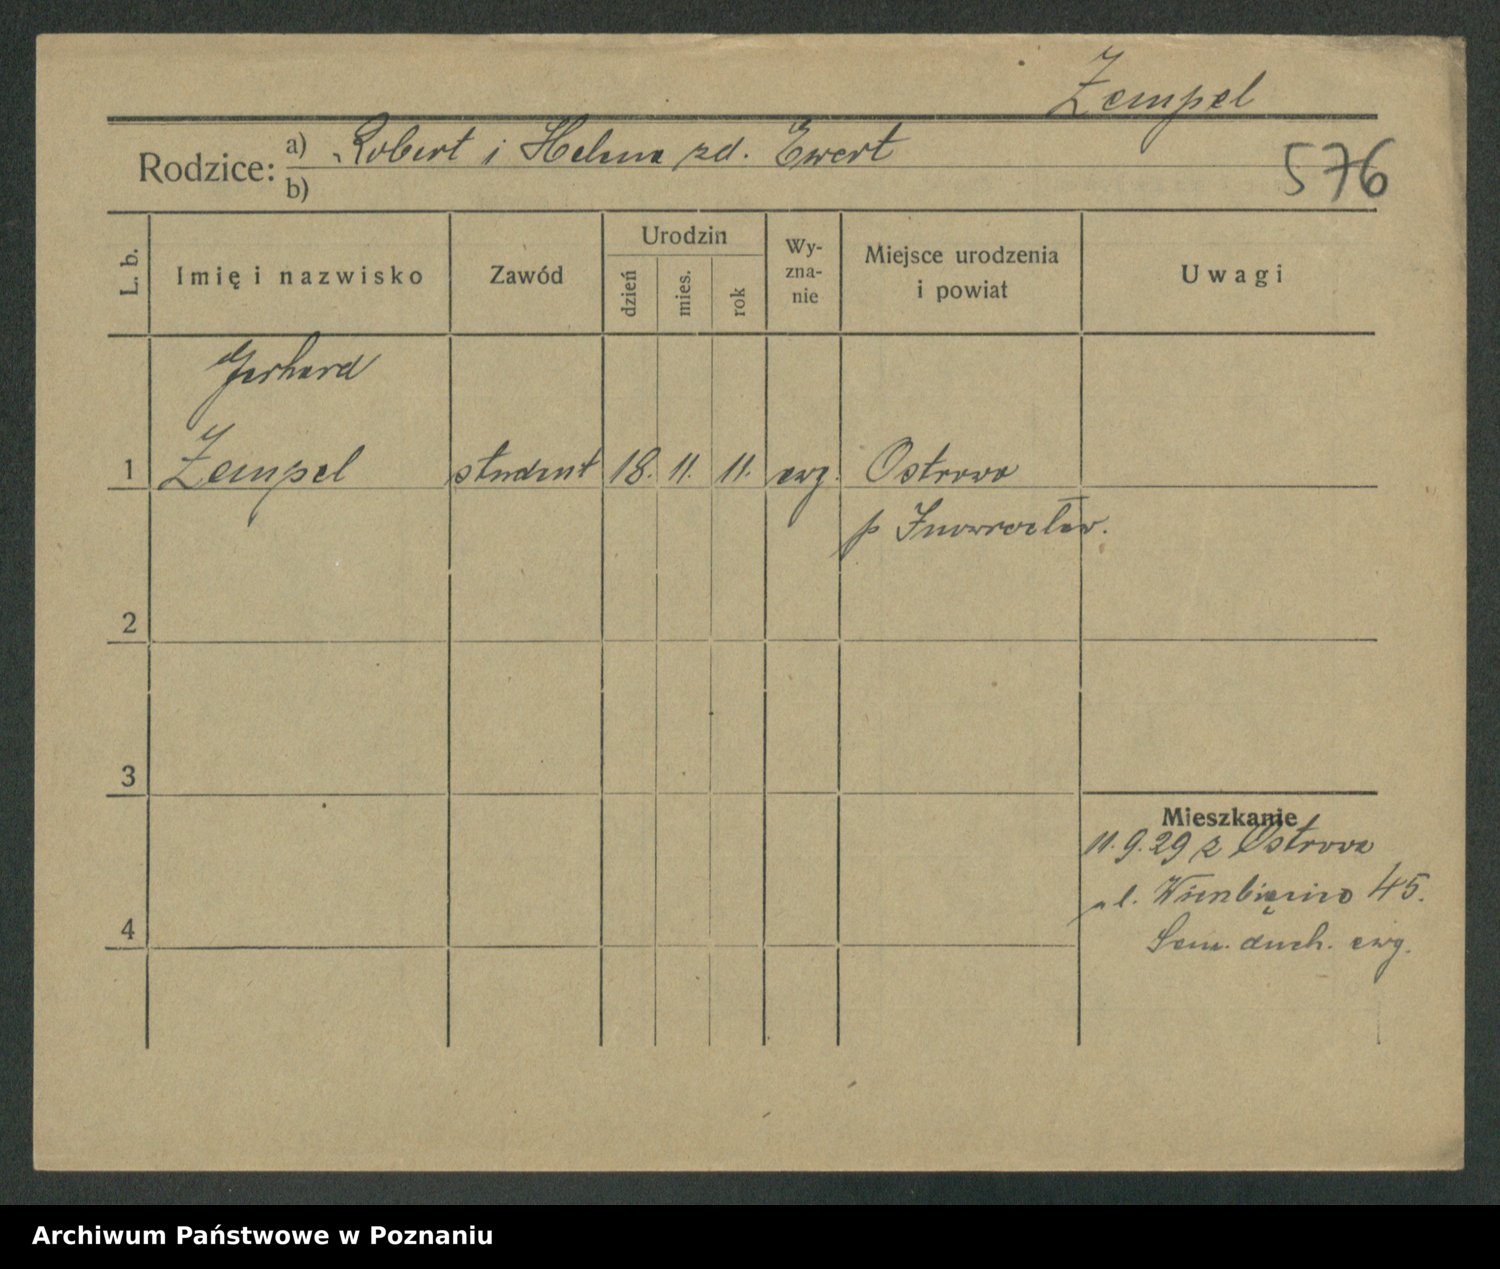 Zempel
Rodzice: a) Robert i Helena zd. Ewert
b)
576
L. b.
Imię i nazwisko
Zawód
Urodzin
dzień
mies.
rok
Wy-
zna-
nie
Miejsce urodzenia
i powiat
Uwagi
Gerhard
1 Zempel student 18. 11. 11. ewg. Ostrowo
p Inowrocław.
2
3
Mieszkanie
11.9.29 z Ostrowa
ul. 45.
4
Sem. duch. ewg.
Archiwum Państwowe w Poznaniu